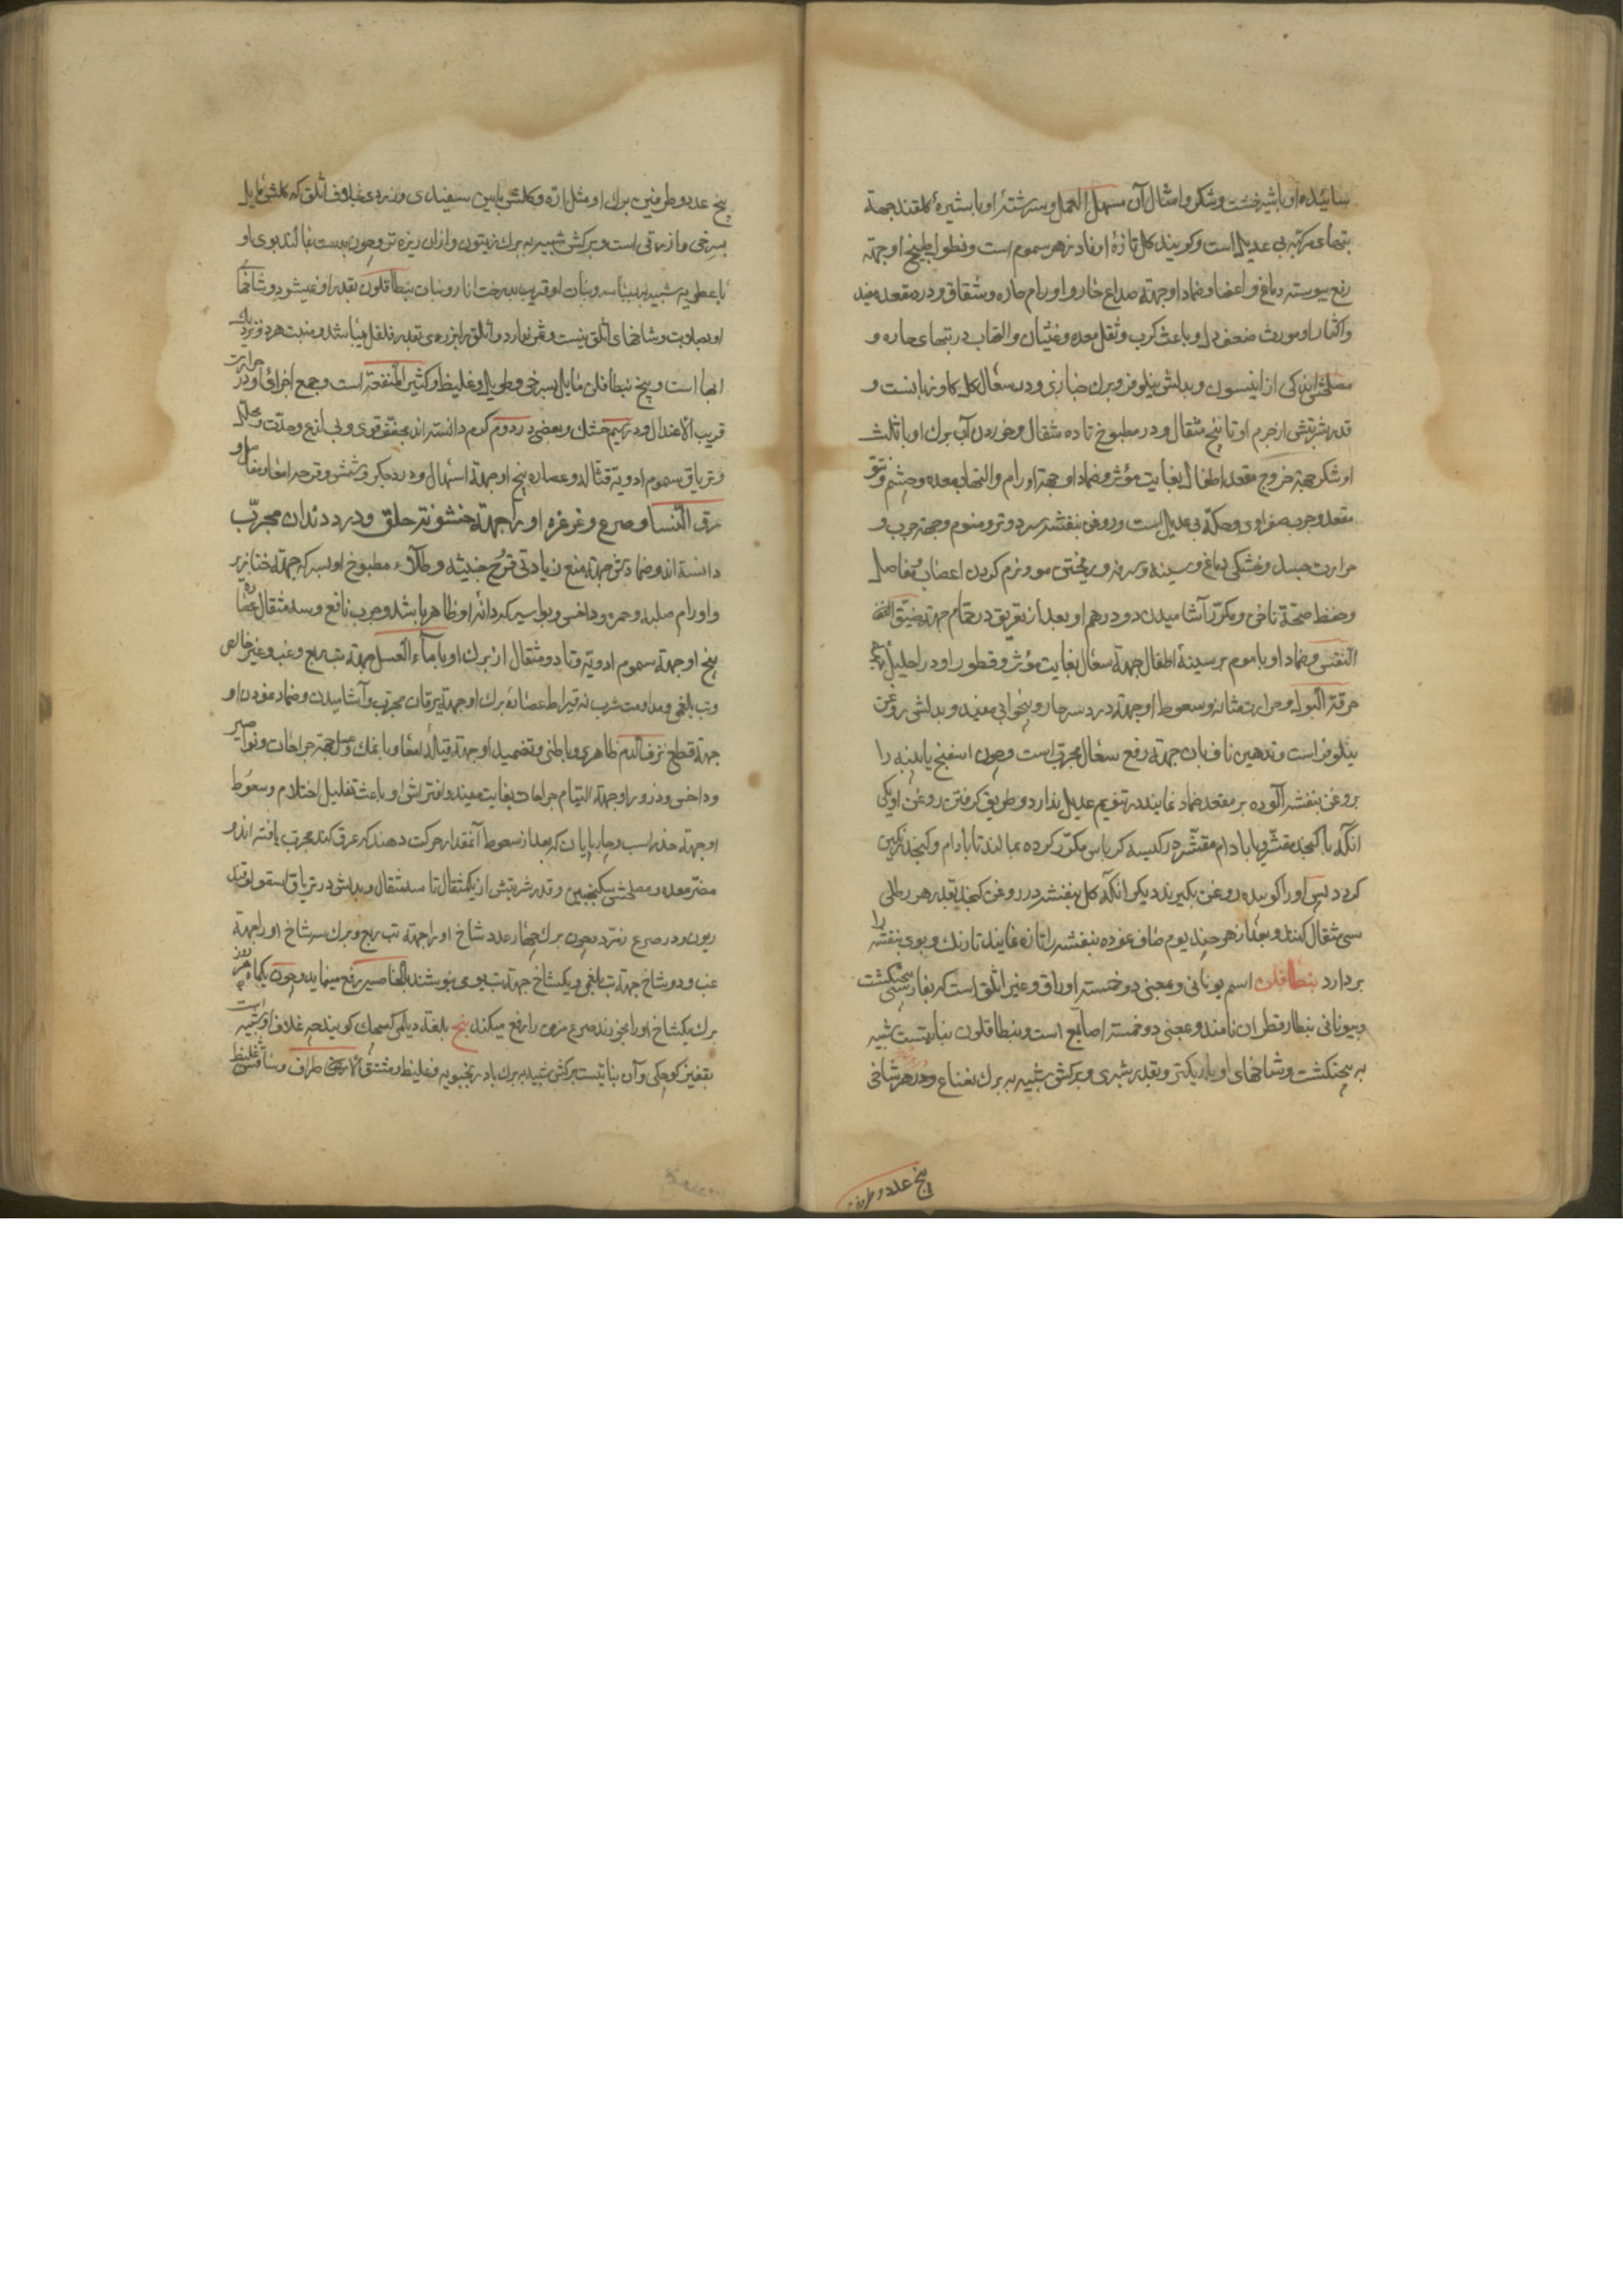 سائیده او با شیرخشت و شکر و امثال آن مسهل العمل و سرشتهٔ او با شیرهٔ کلقند جهة
تبهای مرکبه بی عدیل است و کویند کل تازهٔ او فادزهر سموم است و نطول طبیخ او جهته
رفع یبوسته دماغ و اعضا و ضماد او جهته صداع حار و اورام حاره و شقاق و درد مقعد مفید
و اکثار او مورث ضعف دل و باعث کرب و ثقل معده و غثیان و التهاب در تبهای حاره و
مصلحش اندکی از انیسون و بدلش نیلوفر و برک خبازی و در سعال کل کاوزبانست و
قدر شربتش از جرم او تا پنج مثقال و در مطبوخ تا ده مثقال و خوردن آب برک او با ثلث
او شکر جهة خروج مقعد اطفال بغایت مؤثر و ضماد او جهة اورام و التهاب معده و چشم و نتو
مقعد و جرب صفراوی و حکه بی عدیل است و روغن بنفشه سرد و تر و منوم و جهة جرب و
حرارت جسد و خشکی دماغ و سینه و سرفه و ریختن مو و نرم کردن اعصاب و مفاصل
و حفظ صحة ناخن و مکرر آشامیدن دو درهم او بعد از تعریق در حمام جهة ضیق النفس
النفس و ضماد او با موم بر سینهٔ اطفال جهة سعال بغایت مؤثر و قطور او در احلیل جهة
حرقة البول و حرارت مثانه و سعوط او جهة درد سر حار و بیخوابی مفید و بدلش روغن
نیلوفر است و تدهین ناف بان جهة رفع سعال مجرب است و چون اسفنج یا پنبه را
بروغن بنفشه آلوده بر مقعد ضماد نمایند در تنویم عدیل ندارد و طریق کرفتن روغن او یکی
آنکه با کنجد مقشر یا بادام مقشر در کیسه کرباس مکرر کرده بمالند تا بادام و کنجد رنکین
کردد پس او را کوبیده روغن بکیرند دیکر آنکه کل بنفشه در روغن کنجد بقدر هر رطلی
سی مثقال کنند و بعد از هر چند یوم صاف نموده بنفشه را تازه نمایند تا رنک و بوی بنفشه را
بردارد بنطافلن اسم یونانی و بمعنی دو خمسته اوراق و غیر اثلق است که بفارسی پنجنکشت
و بیونانی بنطارقطران نامند و بمعنی دو خمسته اصابع است و بنطافلون نباتیست شبیه
به پنجنکشت و شاخهای او باریکتر و بقدر شبری و برکش شبیه به برک نعناع و در هر شاخی
پنج عدد و طرفین
پنج عدد و طرفین برک او مثل اره و کلش مابین سفیدی و زردی بخلاف اثلق که کلش مایل
بسرخی و ازرقی است و برکش شبیه به برک زیتون و ازان ریزه تر و چون بدست بمالند بوی او
با عطریه شبیه به بسباسه و نبات او قریب بدرخت انار و نبات بنطافلون بقدر او نمیشود و شاخهای
او بصلابت و شاخهای اثلق نیست و ثمر ندارد و اثلق را بزرهی بقدر فلفل میباشد و منبت هر دو نزدیک
ابها است و بیخ بنطافلن مایل بسرخی و طویل و غلیظ و کثیر المنفعة است و جمیع اجزای او در حرارت
قریب الاعتدال و در سیم خشک و بعضی در دوم کرم دانسته اند مجفف قوی و بی لذع و حدت و محلل
و تریاق سموم ادویه قتاله و عصاره بیخ او جهة اسهال و درد جکر و شش و قرحه امعا و مفاصل و
عرق النسا و صرع و غرغره او را جهة خشونة حلق و درد دندان مجرب
دانسته اند و ضمادش جهة منع زیادتی قروح خبیثه و طلاء مطبوخ او بسرکه جهة خنازیر
و اورام صلبه و حمره و داخس و بواسیر که دانهٔ او ظاهر باشد و جرب نافع و سه مثقال عصاره
بیخ او جهة سموم ادویه و تا دو مثقال از برک او با ماء العسل جهة تب ربع و غب و غیر خالص
و تب بلغمی و مداومت شرب نه قیراط عصارهٔ برک او جهة یرقان مجرب و آشامیدن و ضماد نمودن او
جهة قطع نزف الدم ظاهری و باطنی و تضمید او جهة قیلهٔ امعا و با نمک و عسل جهة جراحات و نواصیر
و داخس و ذرور او جهة التیام جراحات بغایت مفید و افتراش او باعث تقلیل احتلام و سعوط
او جهة خدر اسب و چاپایان که بعد از سعوط آنمقدار حرکت دهند که عرق کند مجرب یافته اند و
مضر معده و مصلحش سکنجبین و قدر شربتش از یکمثقال تا سه مثقال و بدلش در تریاق اسقولوقند
ریون و در صرع زمرد و چون برک چهار عدد شاخ او را جهة تب ربع و برک سه شاخ او را جهة
غب و دو شاخ جهة تب بلغمی و یکشاخ جهة تب یومی بنوشند بالخاصیه رفع مینماید و چون یکماه هر روز
برک یکشاخ او را بخورند صرع مزمن را رفع میکند بنج بلغة دیلمی کسمک کویند چه غلاف او شبیه است
بقفیز کوچکی و آن نباتیست برکش شبیه به برک بادرنجبویه و غلیظ و مشقق الاطراف و ساقش غلیظ